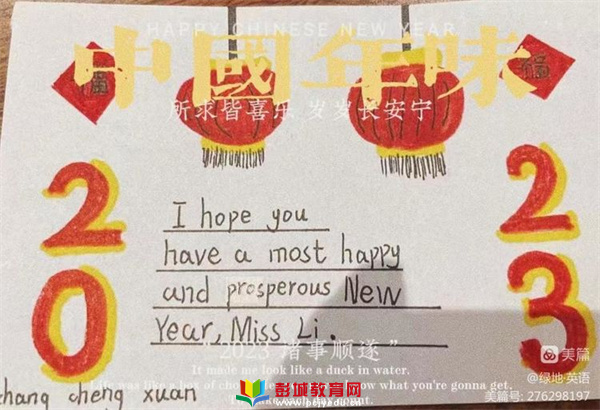 HAPPY CHINESE NEW YEAR
中國年味
福
福
所求皆喜乐 岁岁长安宁
2
2
0
3
I hope you
have a most happy
and prosperous New
Year, Miss Li.
“2023 诸事顺遂”
It made me look like a duck in water.
Life was like a box of now what you're gonna get.
彭城教育网
zhang cheng xuan
美篇
@绿地·英语
美篇号: 276298197